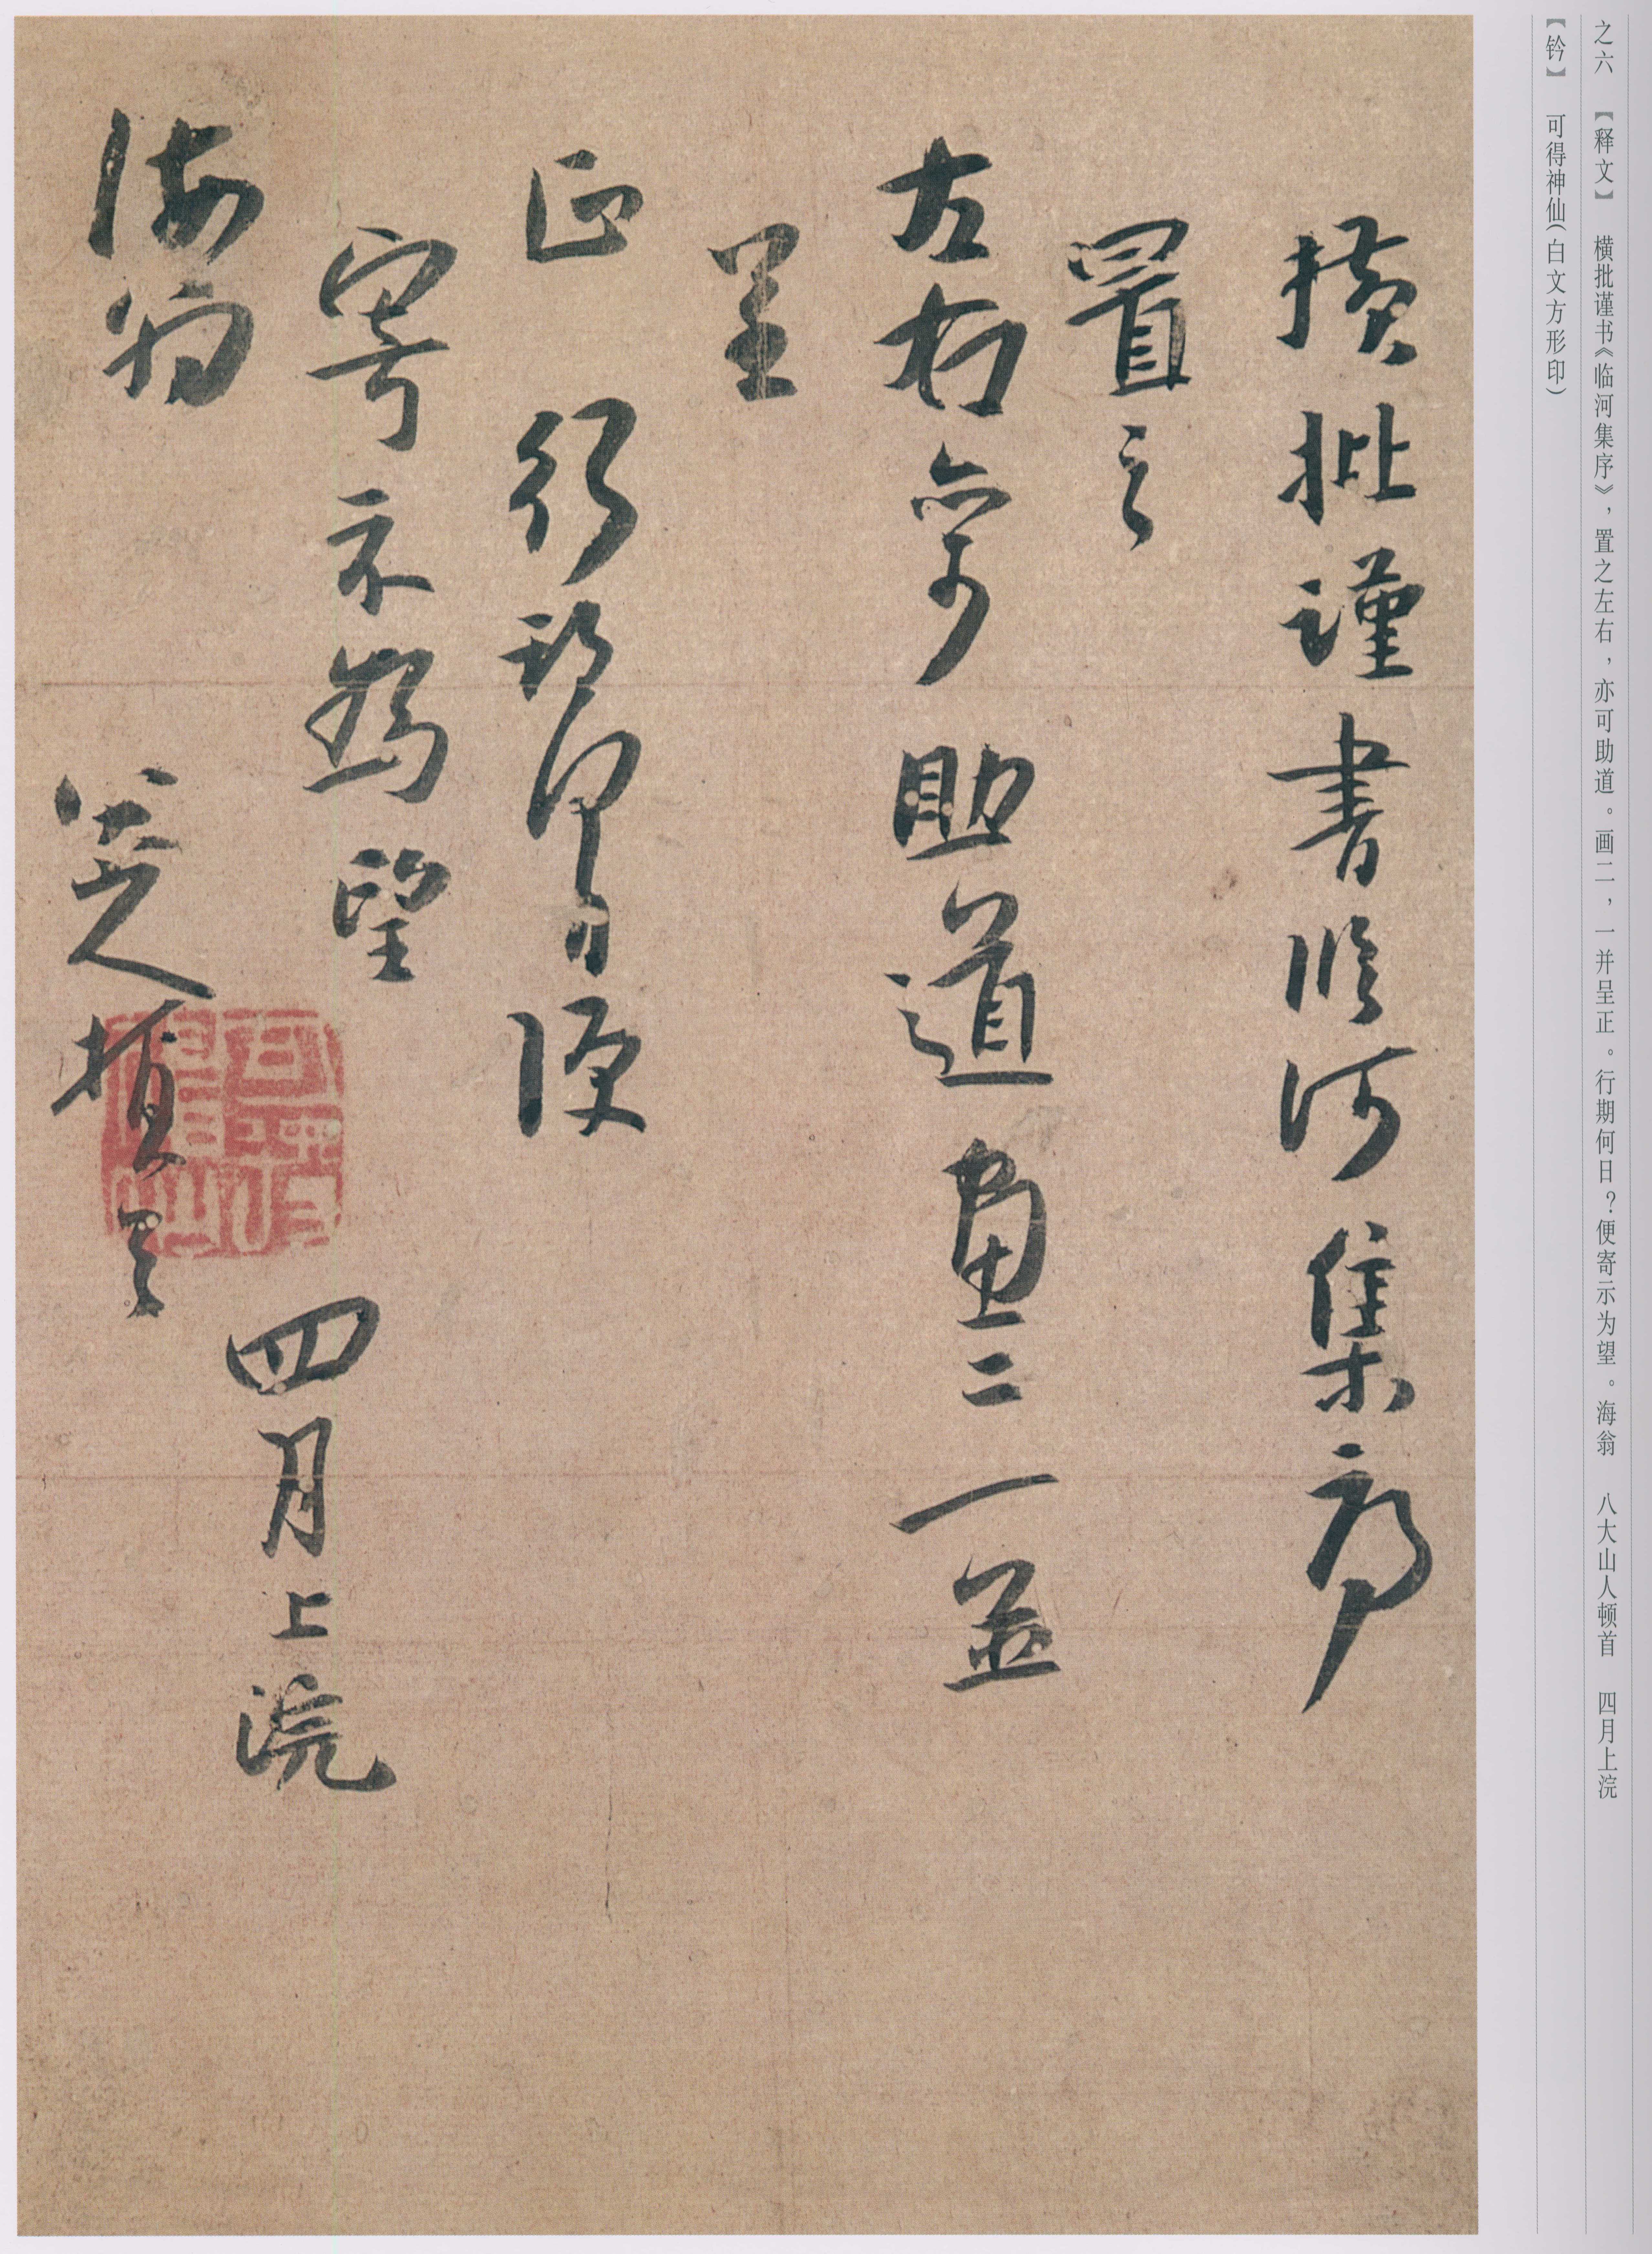 之六 【释文】 横批谨书《临河集序》，置之左右，亦可助道。画二，一并呈正。行期何日？便寄示为望。海翁 八大山人顿首 四月上浣
【钤】 可得神仙（白文方形印）
橫批謹書臨河集序
置之
左右亦可助道畫二一並
呈
正 行期何日便
寄示為望
海翁
四月上浣
八大山人頓首
可得神仙